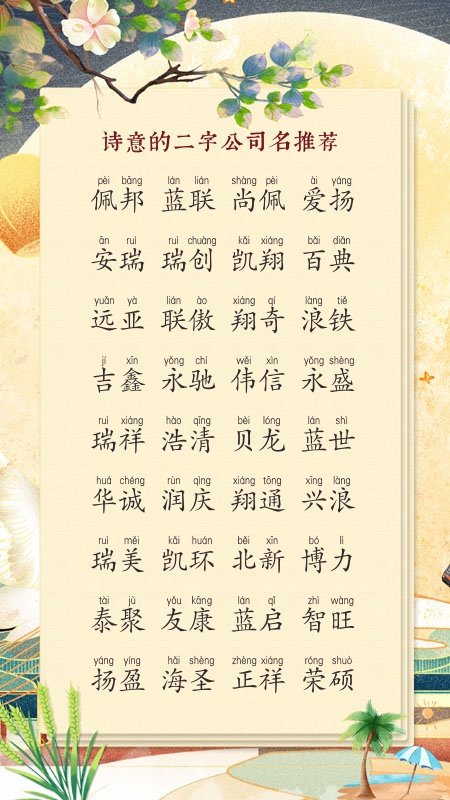 诗意的二字公司名推荐
pèi bāng lán lián shàng pèi ài yáng
佩邦 蓝联 尚佩 爱扬
ān ruì ruì chuàng kǎi xiáng bǎi diǎn
安瑞 瑞创 凯翔 百典
yuǎn yà lián ào xiáng qí làng tiě
远亚 联傲 翔奇 浪铁
jí xīn yǒng chí wěi xìn yǒng shèng
吉鑫 永驰 伟信 永盛
ruì xiáng hào qīng bèi lóng lán shì
瑞祥 浩清 贝龙 蓝世
huá chéng rùn qìng xiáng tōng xīng làng
华诚 润庆 翔通 兴浪
ruì měi kǎi huán běi xīn bó lì
瑞美 凯环 北新 博力
tài jù yǒu kāng lán qǐ zhì wàng
泰聚 友康 蓝启 智旺
yáng yíng hǎi shèng zhèng xiáng róng shuò
扬盈 海圣 正祥 荣硕